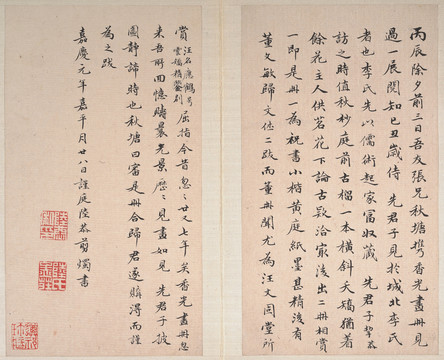 丙辰除夕前三日吾友張兄秋塘携香光畫冊見
過一展閱知己丑歲侍 先君子見於城北李氏
者也李氏先以儒術起家富收藏 先君子挈恭
訪之時值秋杪庭前古榴一本橫斜夭矯猶著
餘花主人供茗花下論古歡洽家後出二冊相賞
一即是冊一為祝書小楷黃庭紙墨甚精後有
董文敏歸文休二跋而董冊聞尤為汪文岡堂所
賞汪名應鶴号雲嬌精鑒別屈指今昔忽忽廿又七年矣香光畫冊忽
來吾所回憶疇曩光景歷歷見畫如見 先君子披
圖靜諦時也秋塘因審是冊合歸君遂購得而謹
為之跋
嘉慶元年嘉平月廿八日謹庭陸恭剪燭書